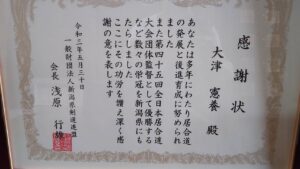 感謝状
大津 憲養 殿
あなたは多年にわたり居合道
の発展と後進育成に努められ
ました
また第四十五回全日本居合道
大会団体監督として優勝する
など数々の栄冠を新潟県にも
たらしました
ここにその功労を讃え深く感
謝の意を表します
令和三年五月三十日
一般財団法人新潟県剣道連盟
会長 浅原 行雄